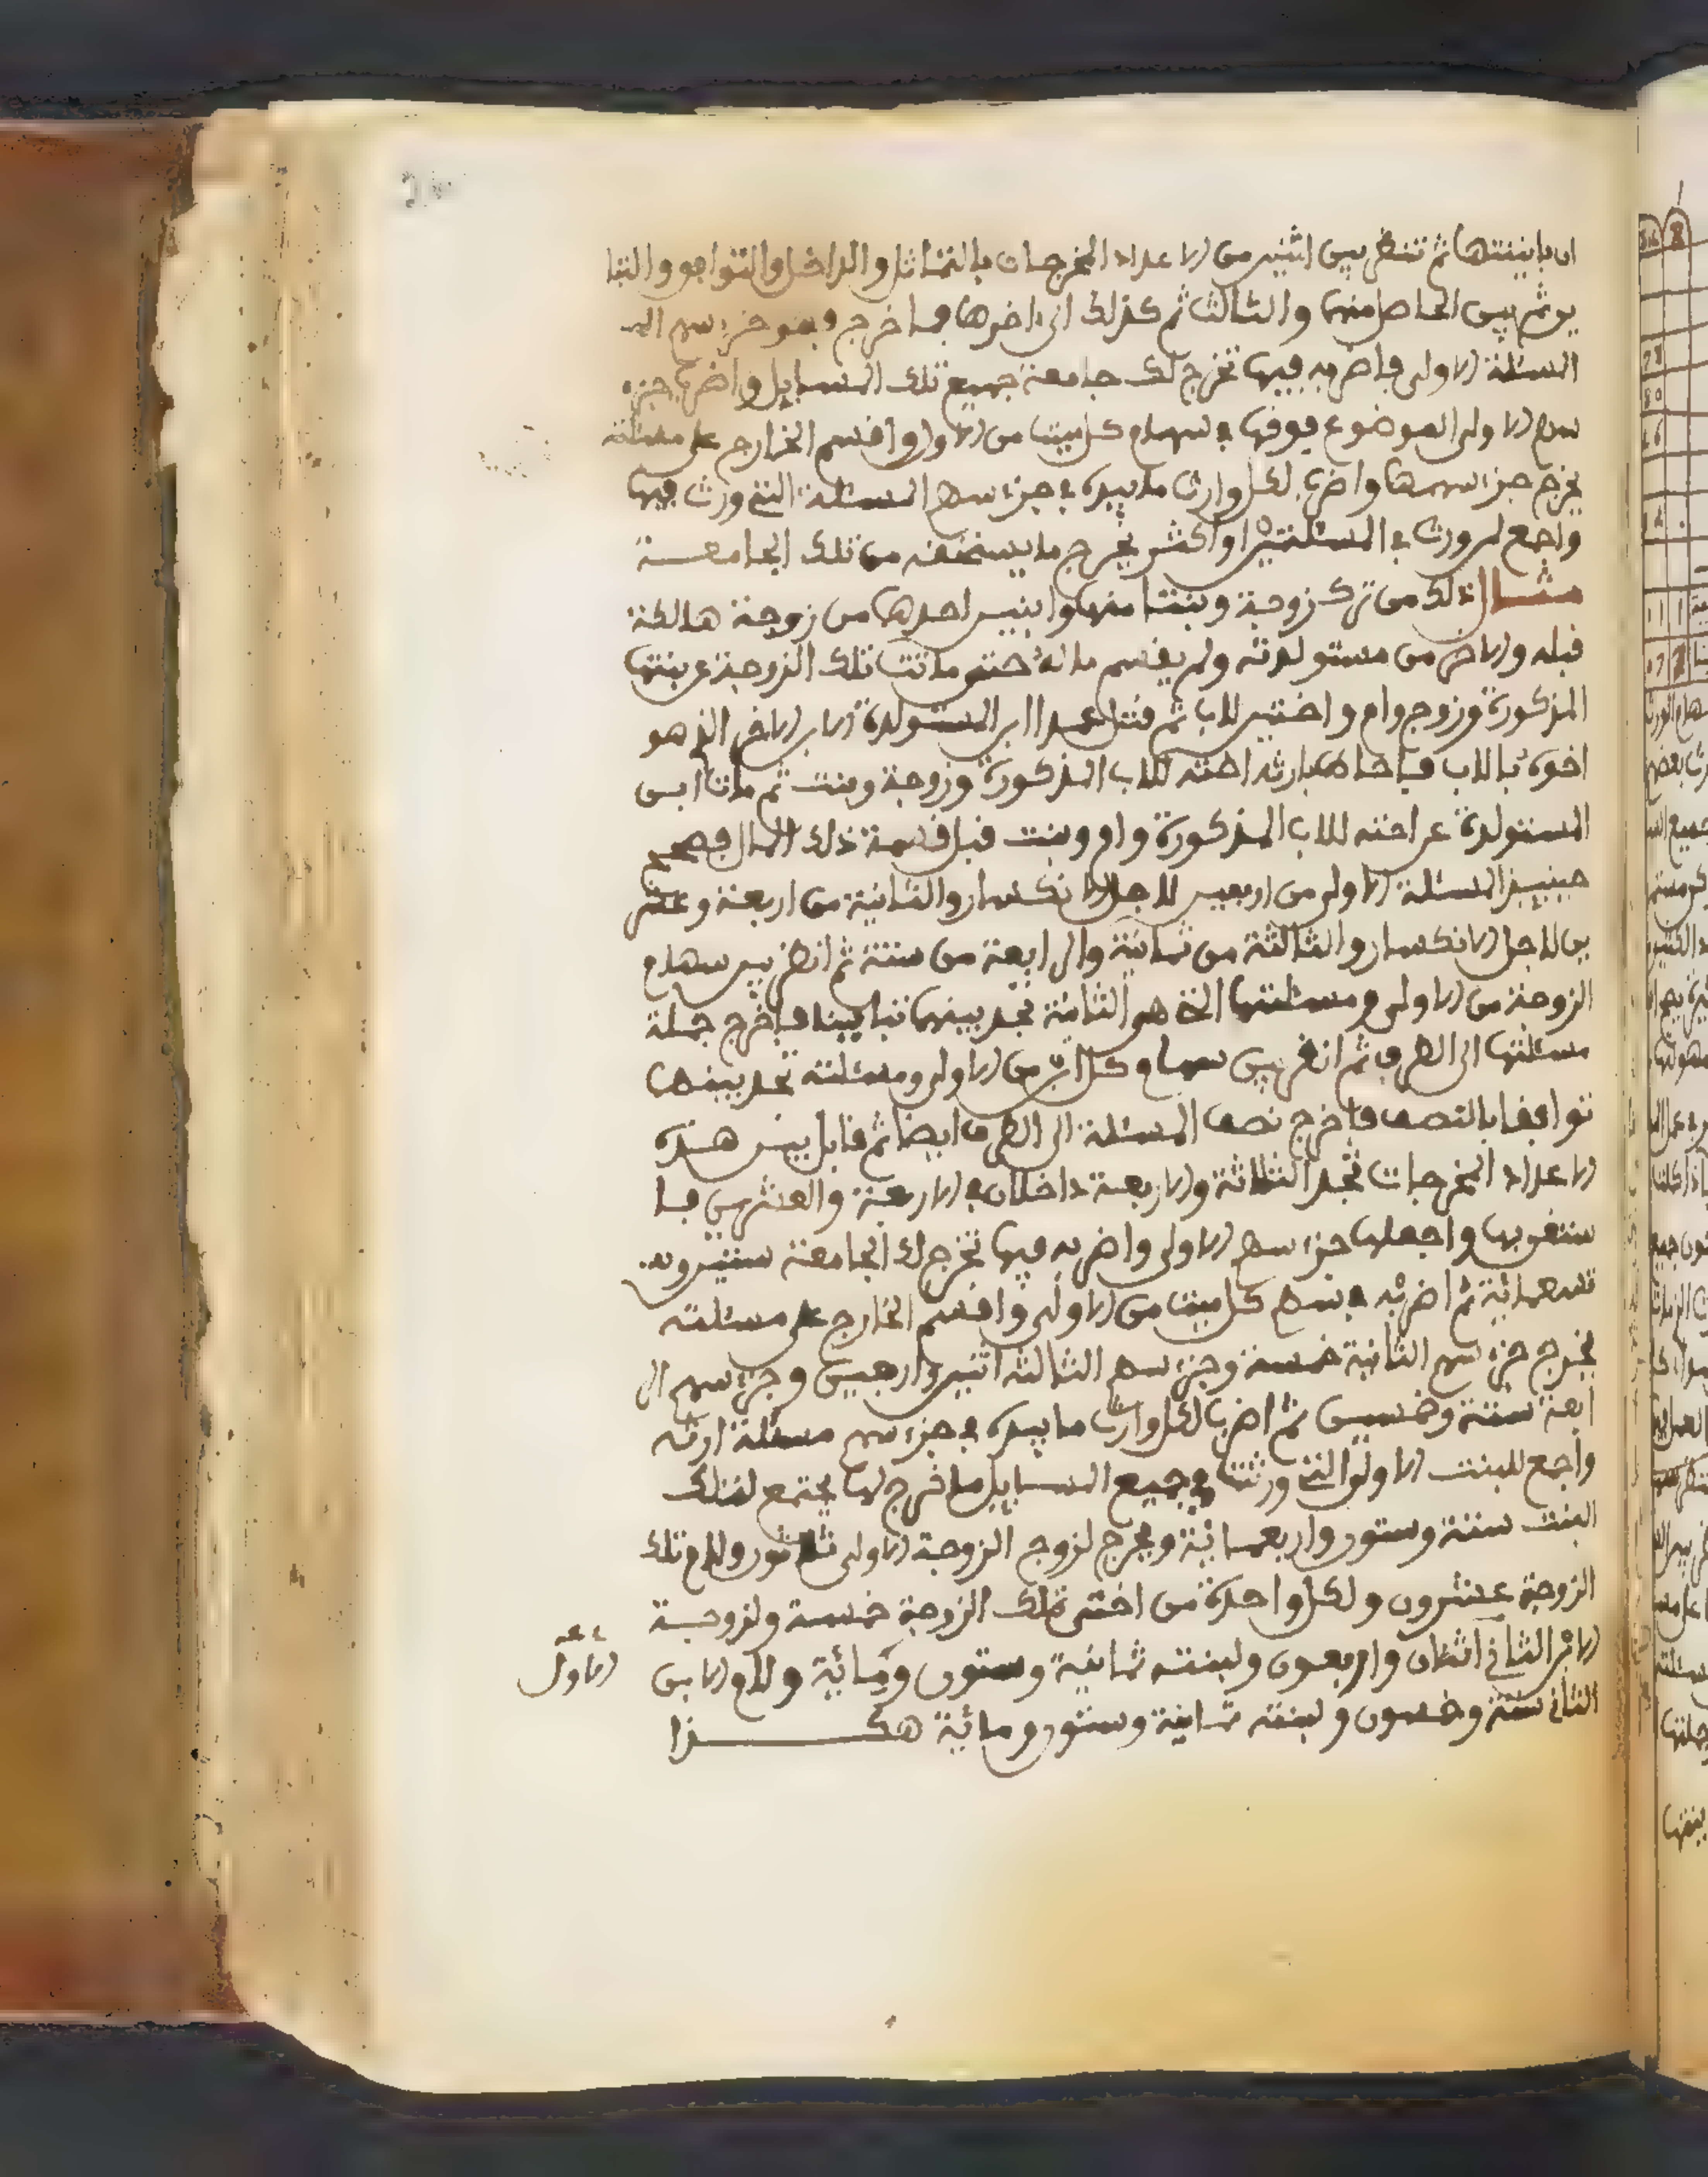 ان باينتها ثم تنظر بين اثنين من الاعداد المخرجات بالتماثل والتداخل والتوافق والتبا
ين ثم بين الحاصل منها والثالث ثم كذلك الى اخرها فما خرج فهو جزء سهم
المسئلة الاولى فاضربه فيها تخرج لك جامعة جميع تلك المسايل واضرب جزء
سهم الاولى الموضوع فوقها في سهام كل ميت من الاولى واقسم الخارج على مسئلته
يخرج جزء سهمها واضرب لكل وارث ما بيده في جزء سهم المسئلة التي ورث فيها
واجمع لمن ورث في المسئلتين او اكثر يخرج ما يستحقه من تلك الجامعة
مثال ذلك من ترك زوجة وبنتا منها وابنين احدها من زوجة هالكة
قبله والاخر من مستولدته ولم يقسم ماله حتى ماتت تلك الزوجة عن بنتها
المذكورة وزوج وام واختين للاب ثم قتل عمدا ابن المستولدة الابن الاخر الذي هو
اخوه بالاب فاحاط بارثه اخته للاب المذكورة وزوجة وبنت ثم مات ابن
المستولدة عن اخته للاب المذكورة وام وبنت قبل قسمة ذلك المال فصحح
حينيذ المسئلة الاولى من اربعين لاجل الانكسار والثانية من اربعة وعشر
ين لاجل الانكسار والثالثة من ثمانية والرابعة من ستة ثم انظر بين سهام
الزوجة من الاولى ومسئلتها التي هو الثانية تجد بينهما تباينا فاخرج جملة
مسئلتها الى الطرف ثم انظر بين سهام كل ابن من الاولى ومسئلته تجد بينهما
توافقا بالنصف فاخرج نصف المسئلة الى الطرف ايضا ثم قابل بين هذه
الاعداد المخرجات تجد الثلاثة والاربعة داخلان في الاربعة والعشرين فا
ستغن بها واجعلها جزء سهم الاولى واضربه فيها تخرج لك الجامعة ستين و
تسعمائة ثم اضربه في سهم كل ميت من الاولى واقسم الخارج على مسئلته
يخرج جزء سهم الثانية خمسة وجزء سهم الثالثة اثنين واربعين وجزء سهم الر
ابعة ستة وخمسين ثم اضرب لكل وارث ما بيده في جزء سهم مسئلة ارثه
واجمع للبنت الاولى التي ورثت في جميع المسايل ما خرج لها يجتمع لتلك
البنت ستة وستون واربعمائة ويخرج لزوج الزوجة الاولى ثلاثون ولام تلك
الزوجة عشرون ولكل واحدة من اختى تلك الزوجة خمسة ولزوجة
الابن الثاني اثنان واربعون ولبنته ثمانية وستون ومائة ولام الابن
الاول
الثاني ستة وخمسون ولبنته ثمانية وستون ومائة هكذا